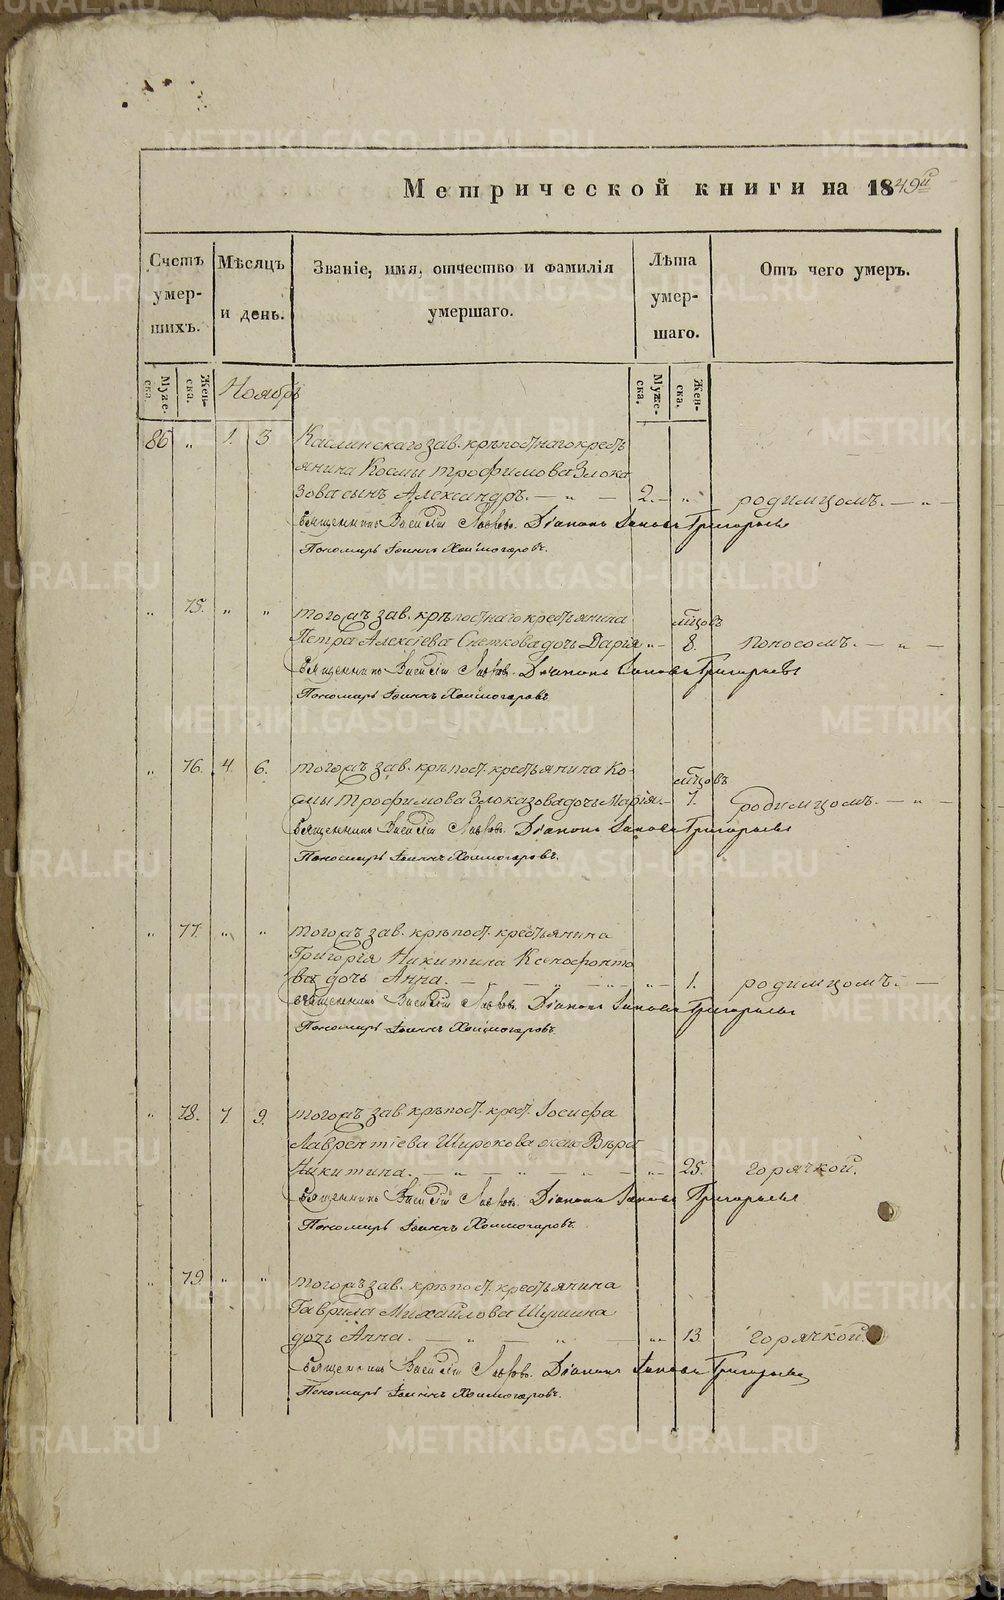 Метрической книги на 1849й
Счетъ умер- шихъ.
Мѣсяцъ и день.
Званіе, имя, отчество и фамилія умершаго.
Лѣта умер- шаго.
Отъ чего умеръ.
Муже- ска.
Жен- ска.
Ноябрь
Муже- ска.
Жен- ска.
86 " 1. 3 Каслинскаго зав. крѣпостнаго крест
янина Космы Трофимова Злока
зова сынъ Александръ. — " — 2. — " родимцомъ. — " —
Священникъ Василій Діаконъ Григорьевъ
Пономарь Іоаннъ Холмогоровъ.
" 75. " " тогожъ зав. крѣпостнаго крестьянина мѣцовъ
Петра Алексіева Снеткова дочь Дарія " — 8. поносомъ. — " —
Священникъ Василій Діаконъ Григорьевъ
Пономарь Іоаннъ Холмогоровъ
" 76. 4. 6. тогожъ зав. крѣпост. крестьянина Ко- мѣцовъ
смы Трофимова Злоказова дочь Марія. — 7. родимцомъ. — " —
Священникъ Василій Діаконъ Григорьевъ
Пономарь Іоаннъ Холмогоровъ.
" 77. " " тогожъ зав. крѣпост. крестьянина
Григорія Никитина Ксенофонто
ва дочь Анна. — — — " — " — 1. родимцомъ. —
Священникъ Василій Діаконъ Григорьевъ
Пономарь Іоаннъ Холмогоровъ.
" 78. 7. 9. тогожъ зав. крѣпост. крест. Іосифа
Лаврентіева Широкова жена Вѣра
Никитина. — " — " — " — " — 25. горячкой.
Священникъ Василій Діаконъ Григорьевъ
Пономарь Іоаннъ Холмогоровъ.
" 79. " " тогожъ зав. крѣпост. крестьянина
Гаврила Михайлова Шушина
дочь Анна. — " — " — " — 13. горячкой.
Священникъ Василій Діаконъ Григорьевъ
Пономарь Іоаннъ Холмогоровъ.
METRIKI.GASO-URAL.RU